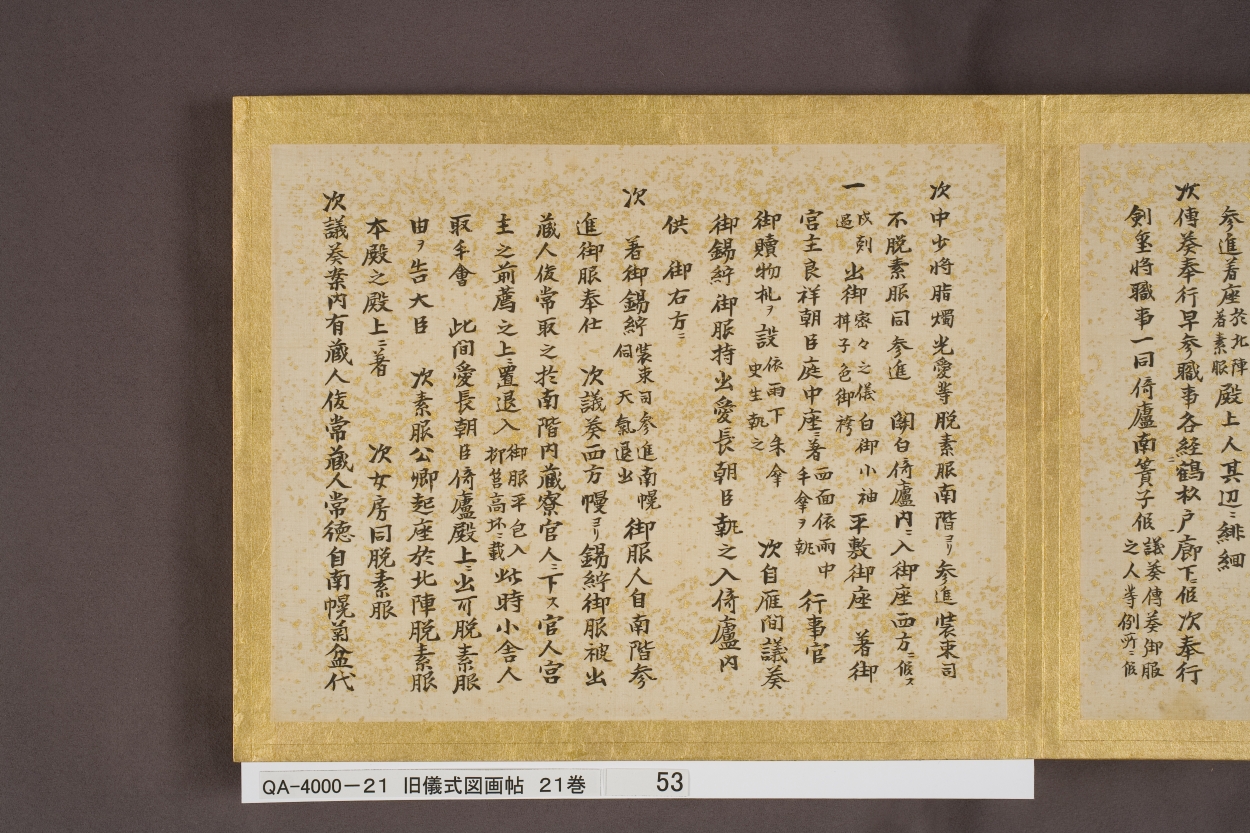 参進着座於北陣着素服殿上人其辺ニ緋細
次傳奏奉行早参職事各経鶴杦戸廊下ニ候次奉行
剣璽将職事一同倚廬南簀子候議奏傳奏御服之人等例所ニ候
次中少将脂燭光愛等脱素服南階ヨリ参進装束司
不脱素服同参進　関白倚廬内ニ入御座西方ニ候ス
一戌刻過出御密々之儀白御小袖丼子色御袴平敷御座　著御
宮主良祥朝臣庭中座ニ著西面依雨中手傘ヲ執　行事官
御贖物札ヲ設依雨下朱傘史生執之　次自雁間議奏
御錫紵御服持出愛長朝臣執之入倚廬内
供　御右方ニ
次　著御錫紵装束司参進南幌伺天氣退出御服人自南階参
進御服奉仕　次議奏西方幔ヨリ錫紵御服被出
蔵人俊常取之於南階内蔵寮官人ニ下ス官人宮
主之前薦之上置退入御服平包入柳筥高坏ニ載此時小舎人
取手會　此間愛長朝臣倚廬殿上ニ出可脱素服
由ヲ告大臣　次素服公卿起座於北陣脱素服
本殿之殿上ニ著　次女房同脱素服
次議奏案内有蔵人俊常蔵人常徳自南幌菊盆代
QA-4000-21　旧儀式図画帖　21巻　53